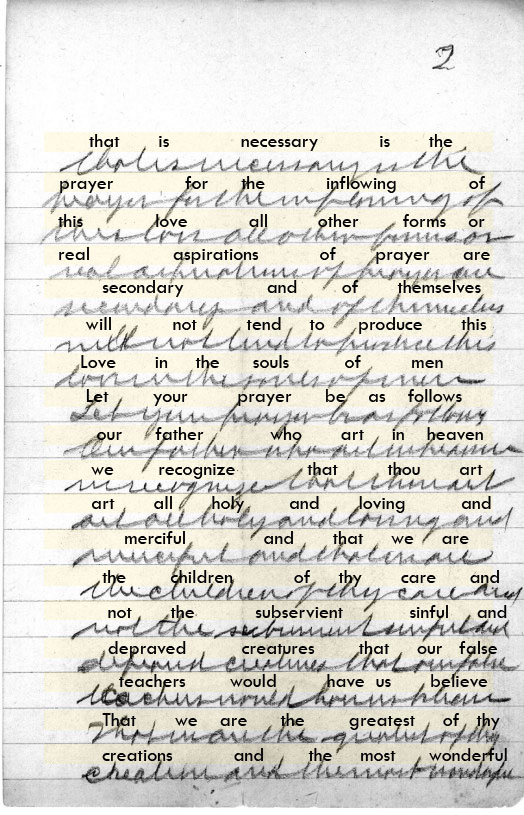 2
that is necessary is the
prayer for the inflowing of
this love all other forms or
real aspirations of prayer are
secondary and of themselves
will not tend to produce this
Love in the souls of men
Let your prayer be as follows
our father who art in heaven
we recognize that thou art
art all holy and loving and
merciful and that we are
the children of thy care and
not the subservient sinful and
depraved creatures that our false
teachers would have us believe
That we are the greatest of thy
creations and the most wonderful